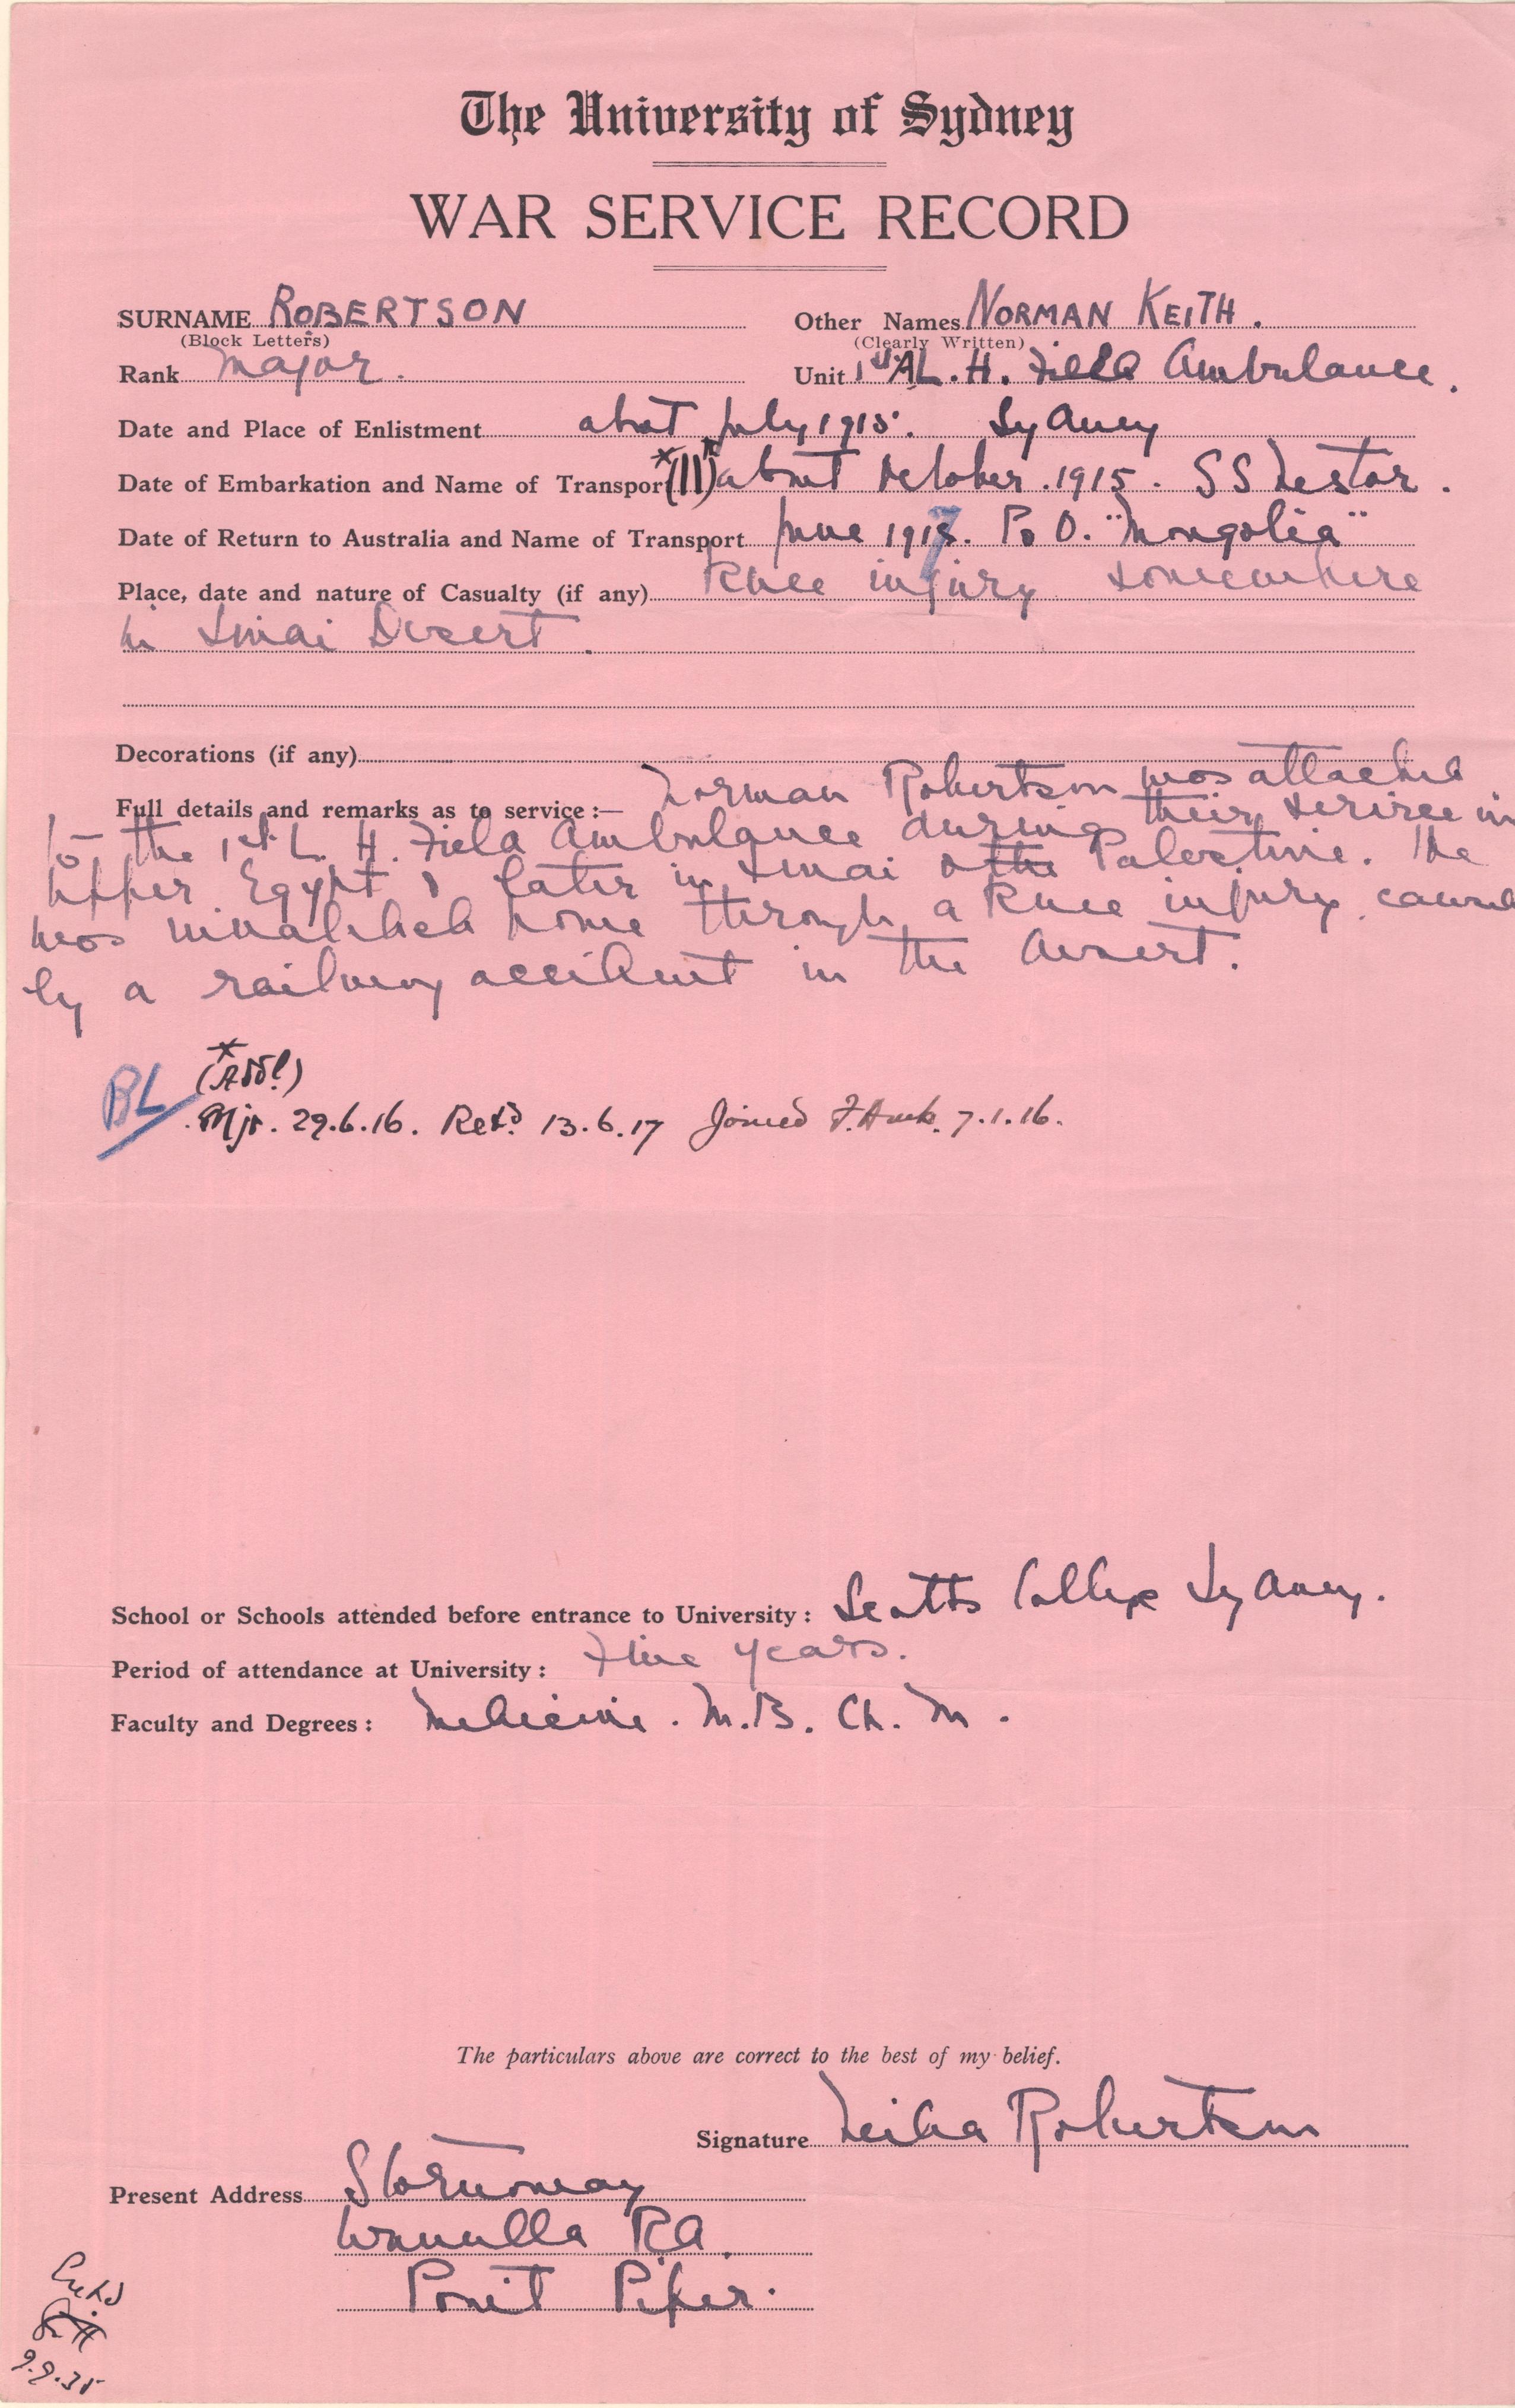 The University of Sydney
WAR SERVICE RECORD
SURNAME ROBERTSON Other Names NORMAN KEITH.
(Block Letters) (Clearly Written)
Rank Major. Unit 1st A L. H. Field Ambulance.
Date and Place of Enlistment about July 1915. Sydney
Date of Embarkation and Name of Transport (11) about October. 1915. SS Nestor.
Date of Return to Australia and Name of Transport June 1917. P&O. "Mongolia"
Place, date and nature of Casualty (if any) Knee injury somewhere
in Sinai Desert.
Decorations (if any)
Full details and remarks as to service:— Norman Robertson was attached
to the 1st L. H. Field Ambulance during their service in
Upper Egypt & later in Sinai & the Palestine. He
was invalided home through a knee injury caused
by a railway accident in the desert.
BL (Addl)
Mjr. 29.6.16. Retd 13.6.17 Joined F. Amb. 7.1.16.
School or Schools attended before entrance to University: Scotts College Sydney.
Period of attendance at University: Five years.
Faculty and Degrees: Medicine. M.B. Ch. M.
The particulars above are correct to the best of my belief.
Signature Robertson
Present Address Stornoway
Wunulla Rd.
Point Piper.
9.9.35